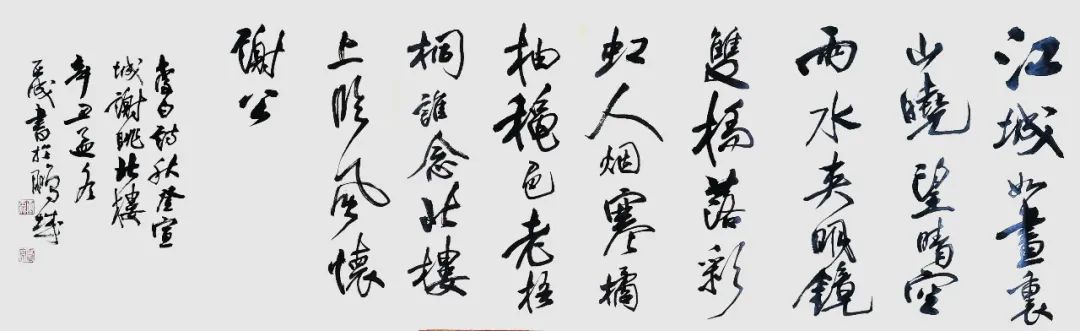 江城如畫裏
山曉望晴空
兩水夹明鏡
雙橋落彩
虹人烟寒橘
柚穐色老梧
桐誰念北樓
上临风懷
謝公
李白詩秋登宣
城謝眺北樓
辛丑孟冬
成書於鵬城